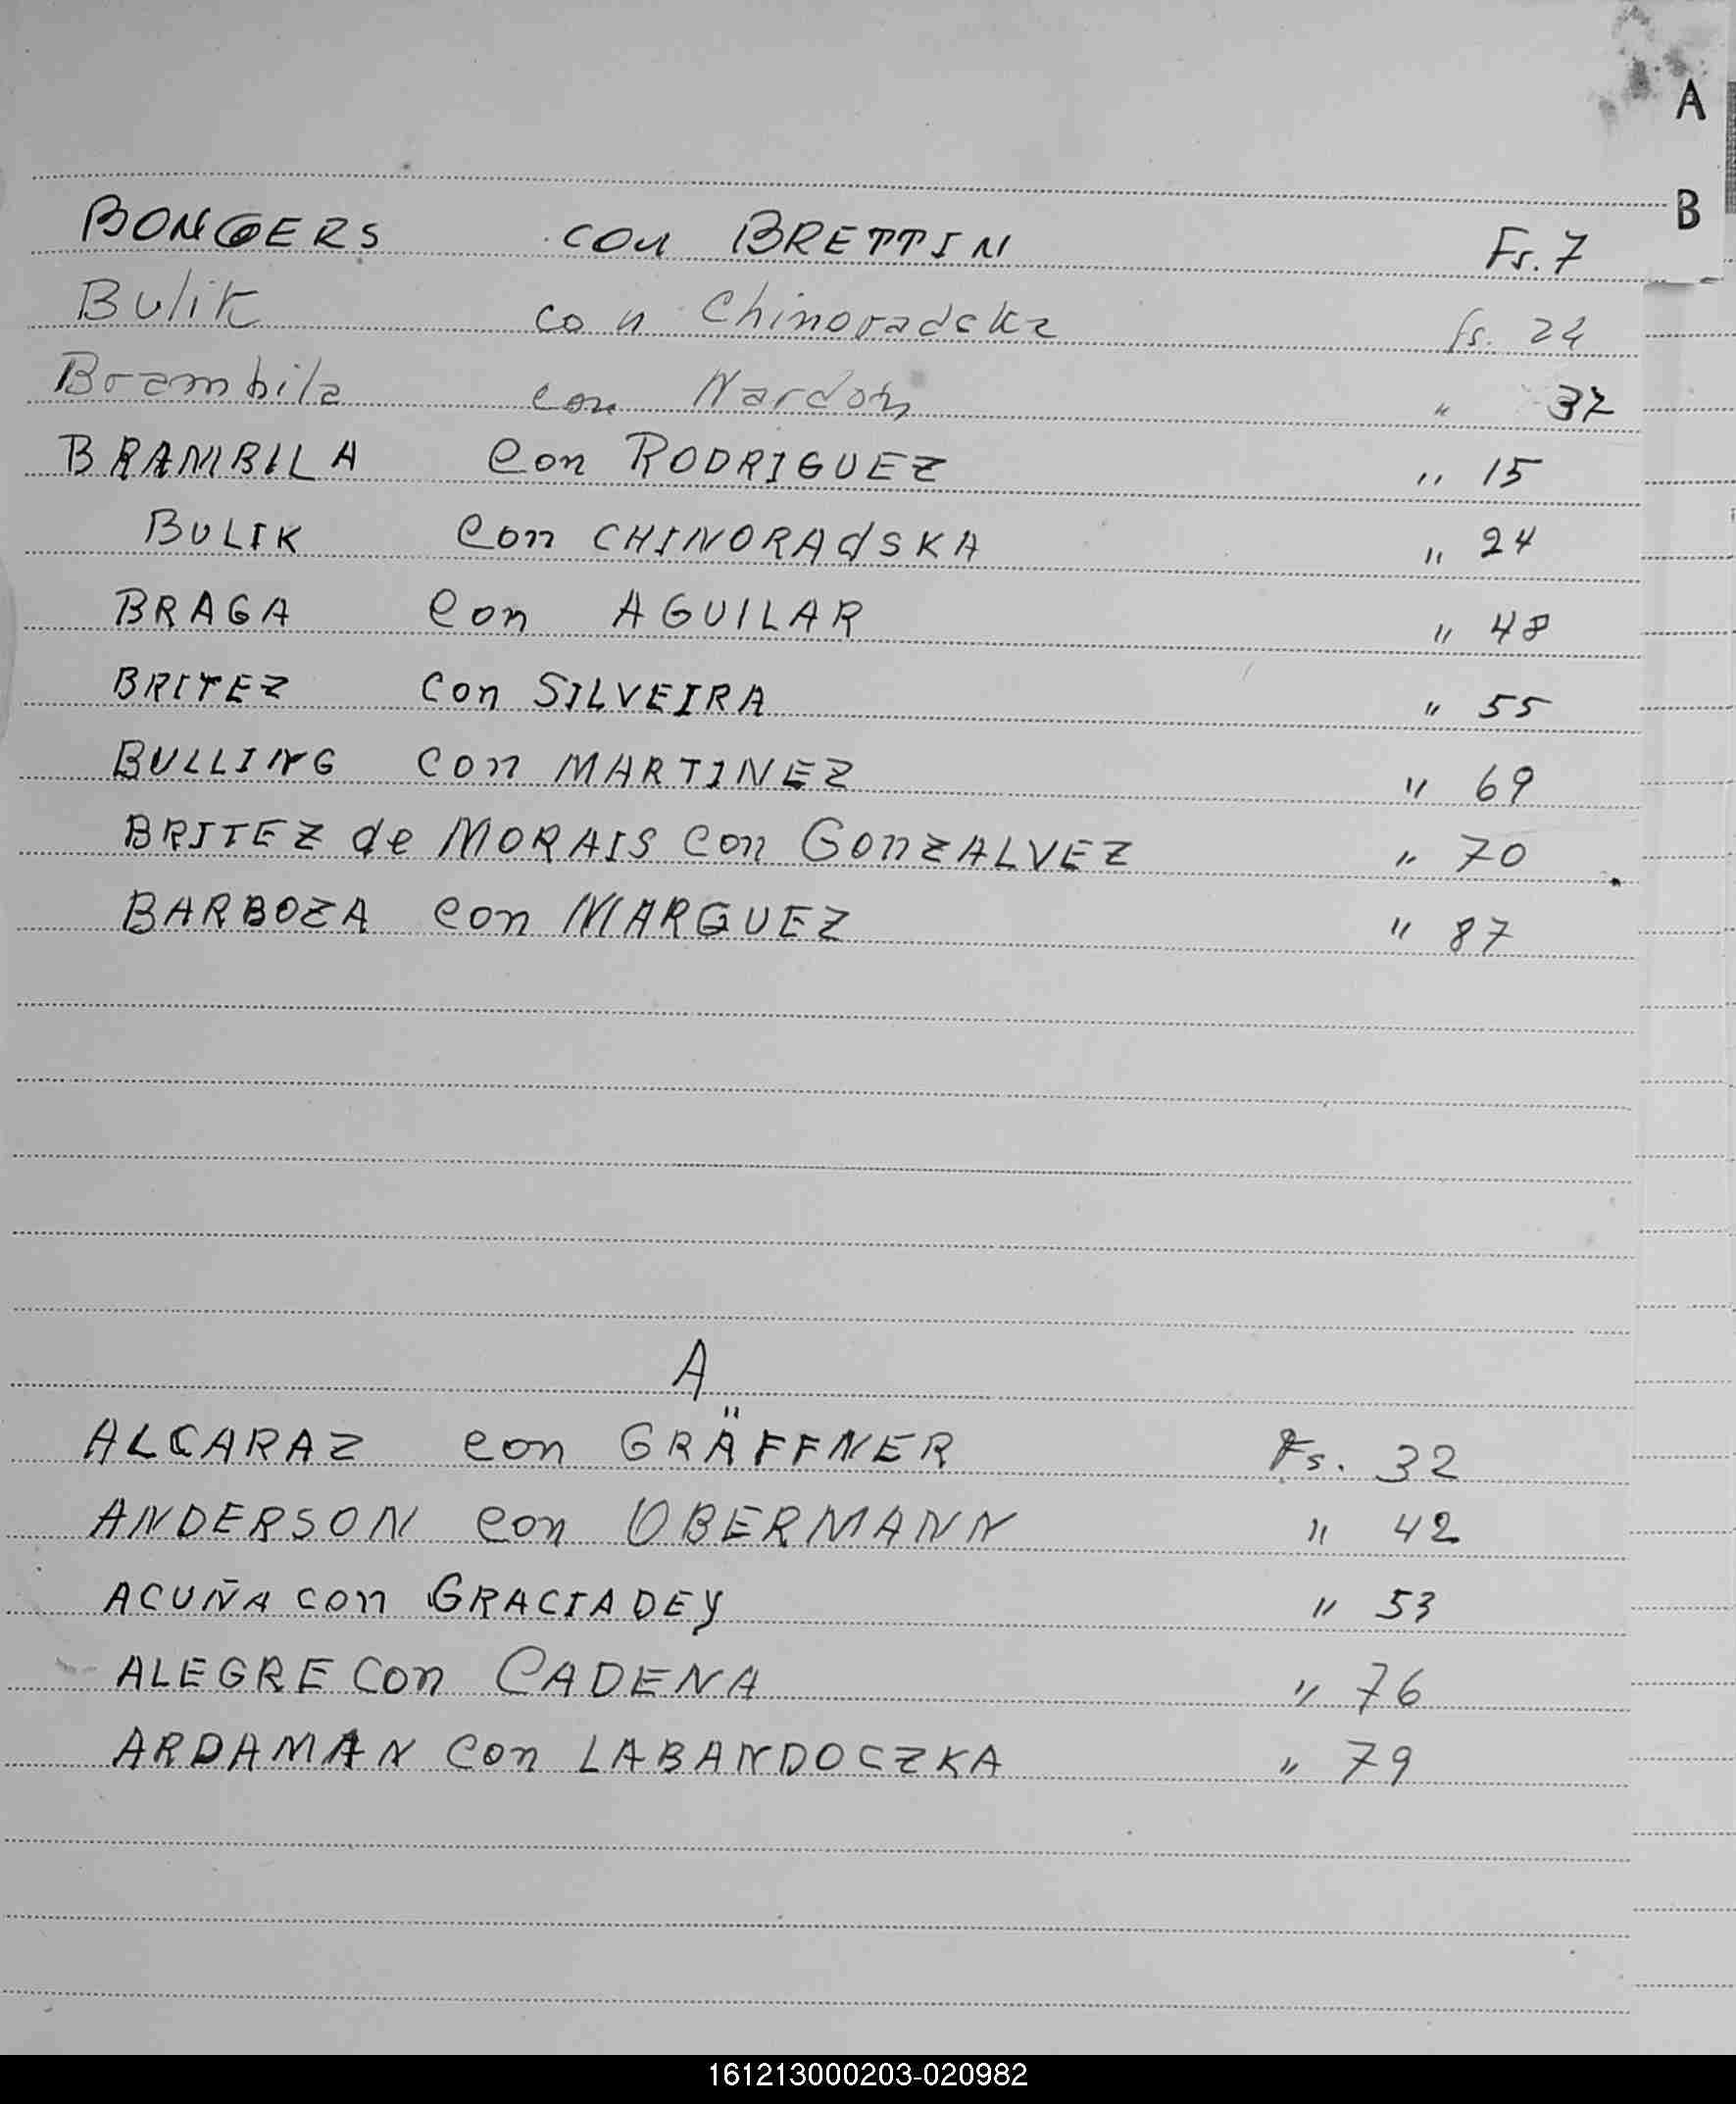 A
B
BONGERS con BRETTIN Fs. 7
Bulik con Chinoradska fs. 24
Brambila con Nardon " 37
BRAMBILA con RODRIGUEZ " 15
BULIK con CHINORAdSKA " 24
BRAGA con AGUILAR " 48
BRITEZ con SILVEIRA " 55
BULLING con MARTINEZ " 69
BRITEZ de MORAIS con GONZALVEZ " 70
BARBOZA con MARGUEZ " 87
A
ALCARAZ con GRÄFFNER Fs. 32
ANDERSON con OBERMANN " 42
ACUÑA con GRACIADEY " 53
ALEGRE con CADENA " 76
ARDAMAN con LABANDOCZKA " 79
161213000203-020982